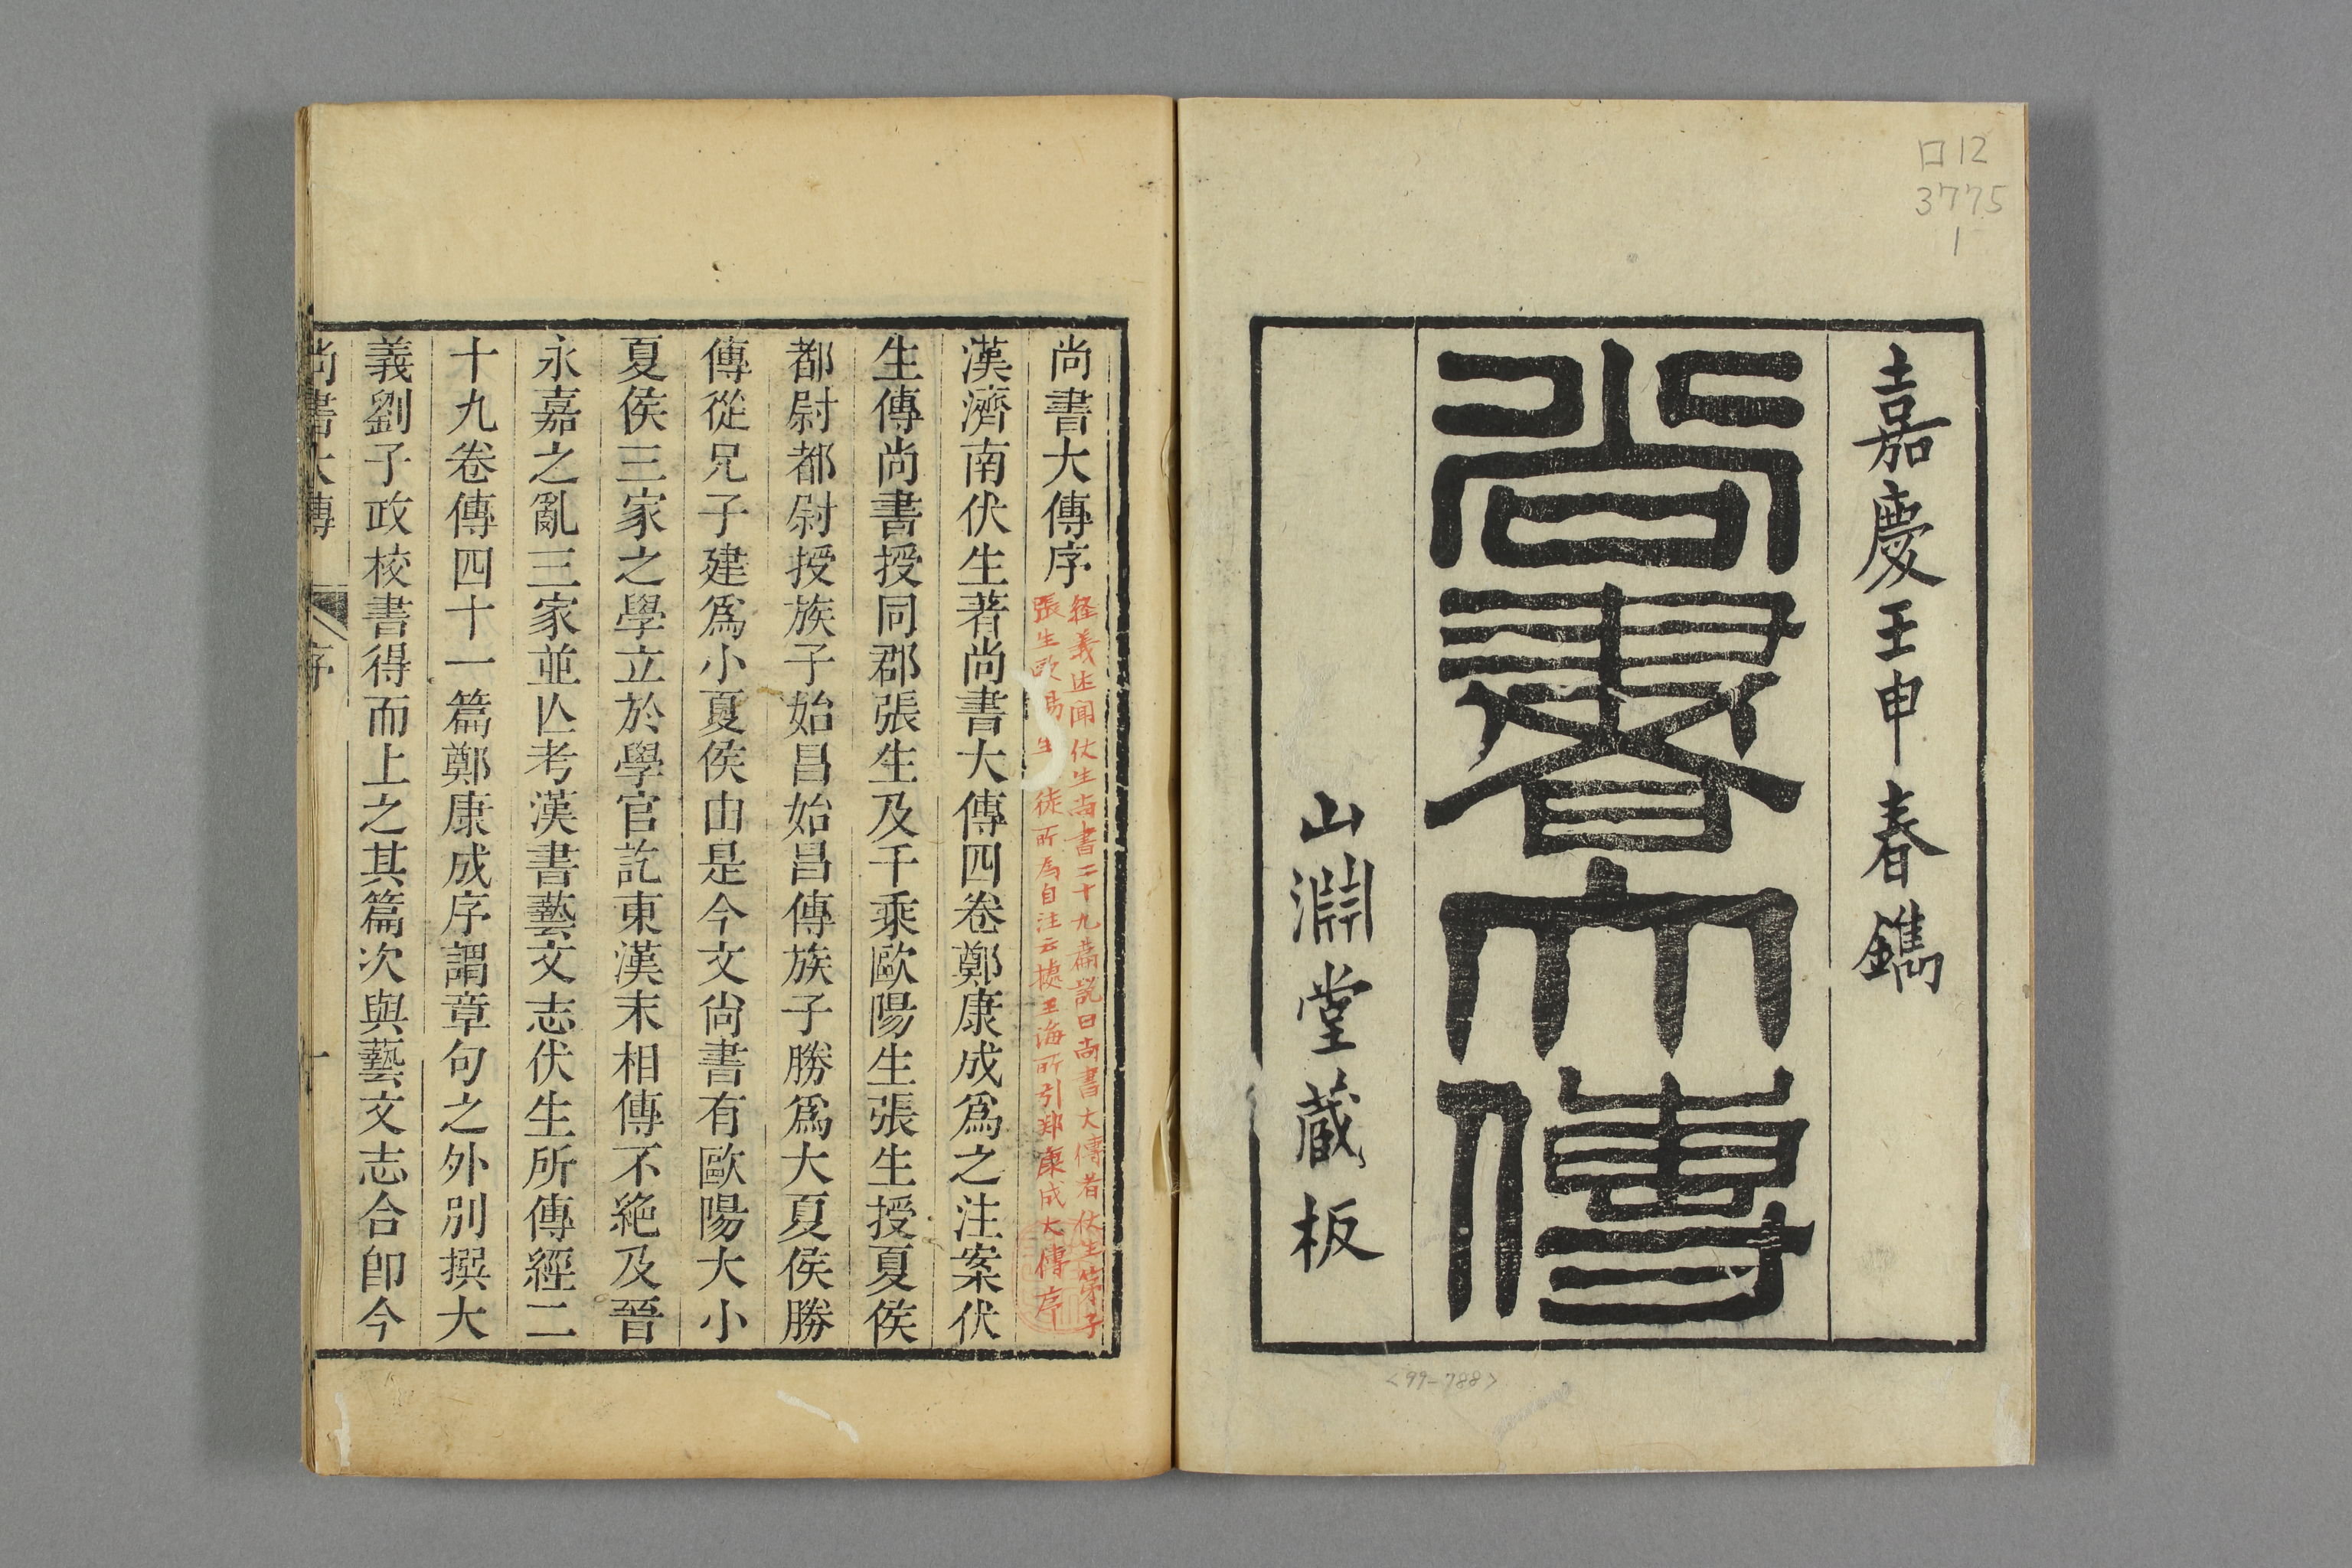 口12
3775
1
嘉慶壬申春鐫
尚書大傳
山淵堂藏板
<99-788>
尚書大傳序
経義述聞伏生尚書二十九篇說曰尚書大傳者伏生弟子
張生歐易生 徒所為自注云據玉海所引郑康成大傳序
漢濟南伏生著尚書大傳四卷鄭康成爲之注案伏
生傳尚書授同郡張生及千乘歐陽生張生授夏侯
都尉都尉授族子始昌始昌傳族子勝爲大夏侯勝
傳從兄子建爲小夏侯由是今文尙書有歐陽大小
夏侯三家之學立於學官訖東漢末相傳不絶及晉
永嘉之亂三家並亾考漢書藝文志伏生所傳經二
十九卷傳四十一篇鄭康成序謂章句之外別撰大
義劉子政校書得而上之其篇次與藝文志合卽今
尚書大傳 序 一